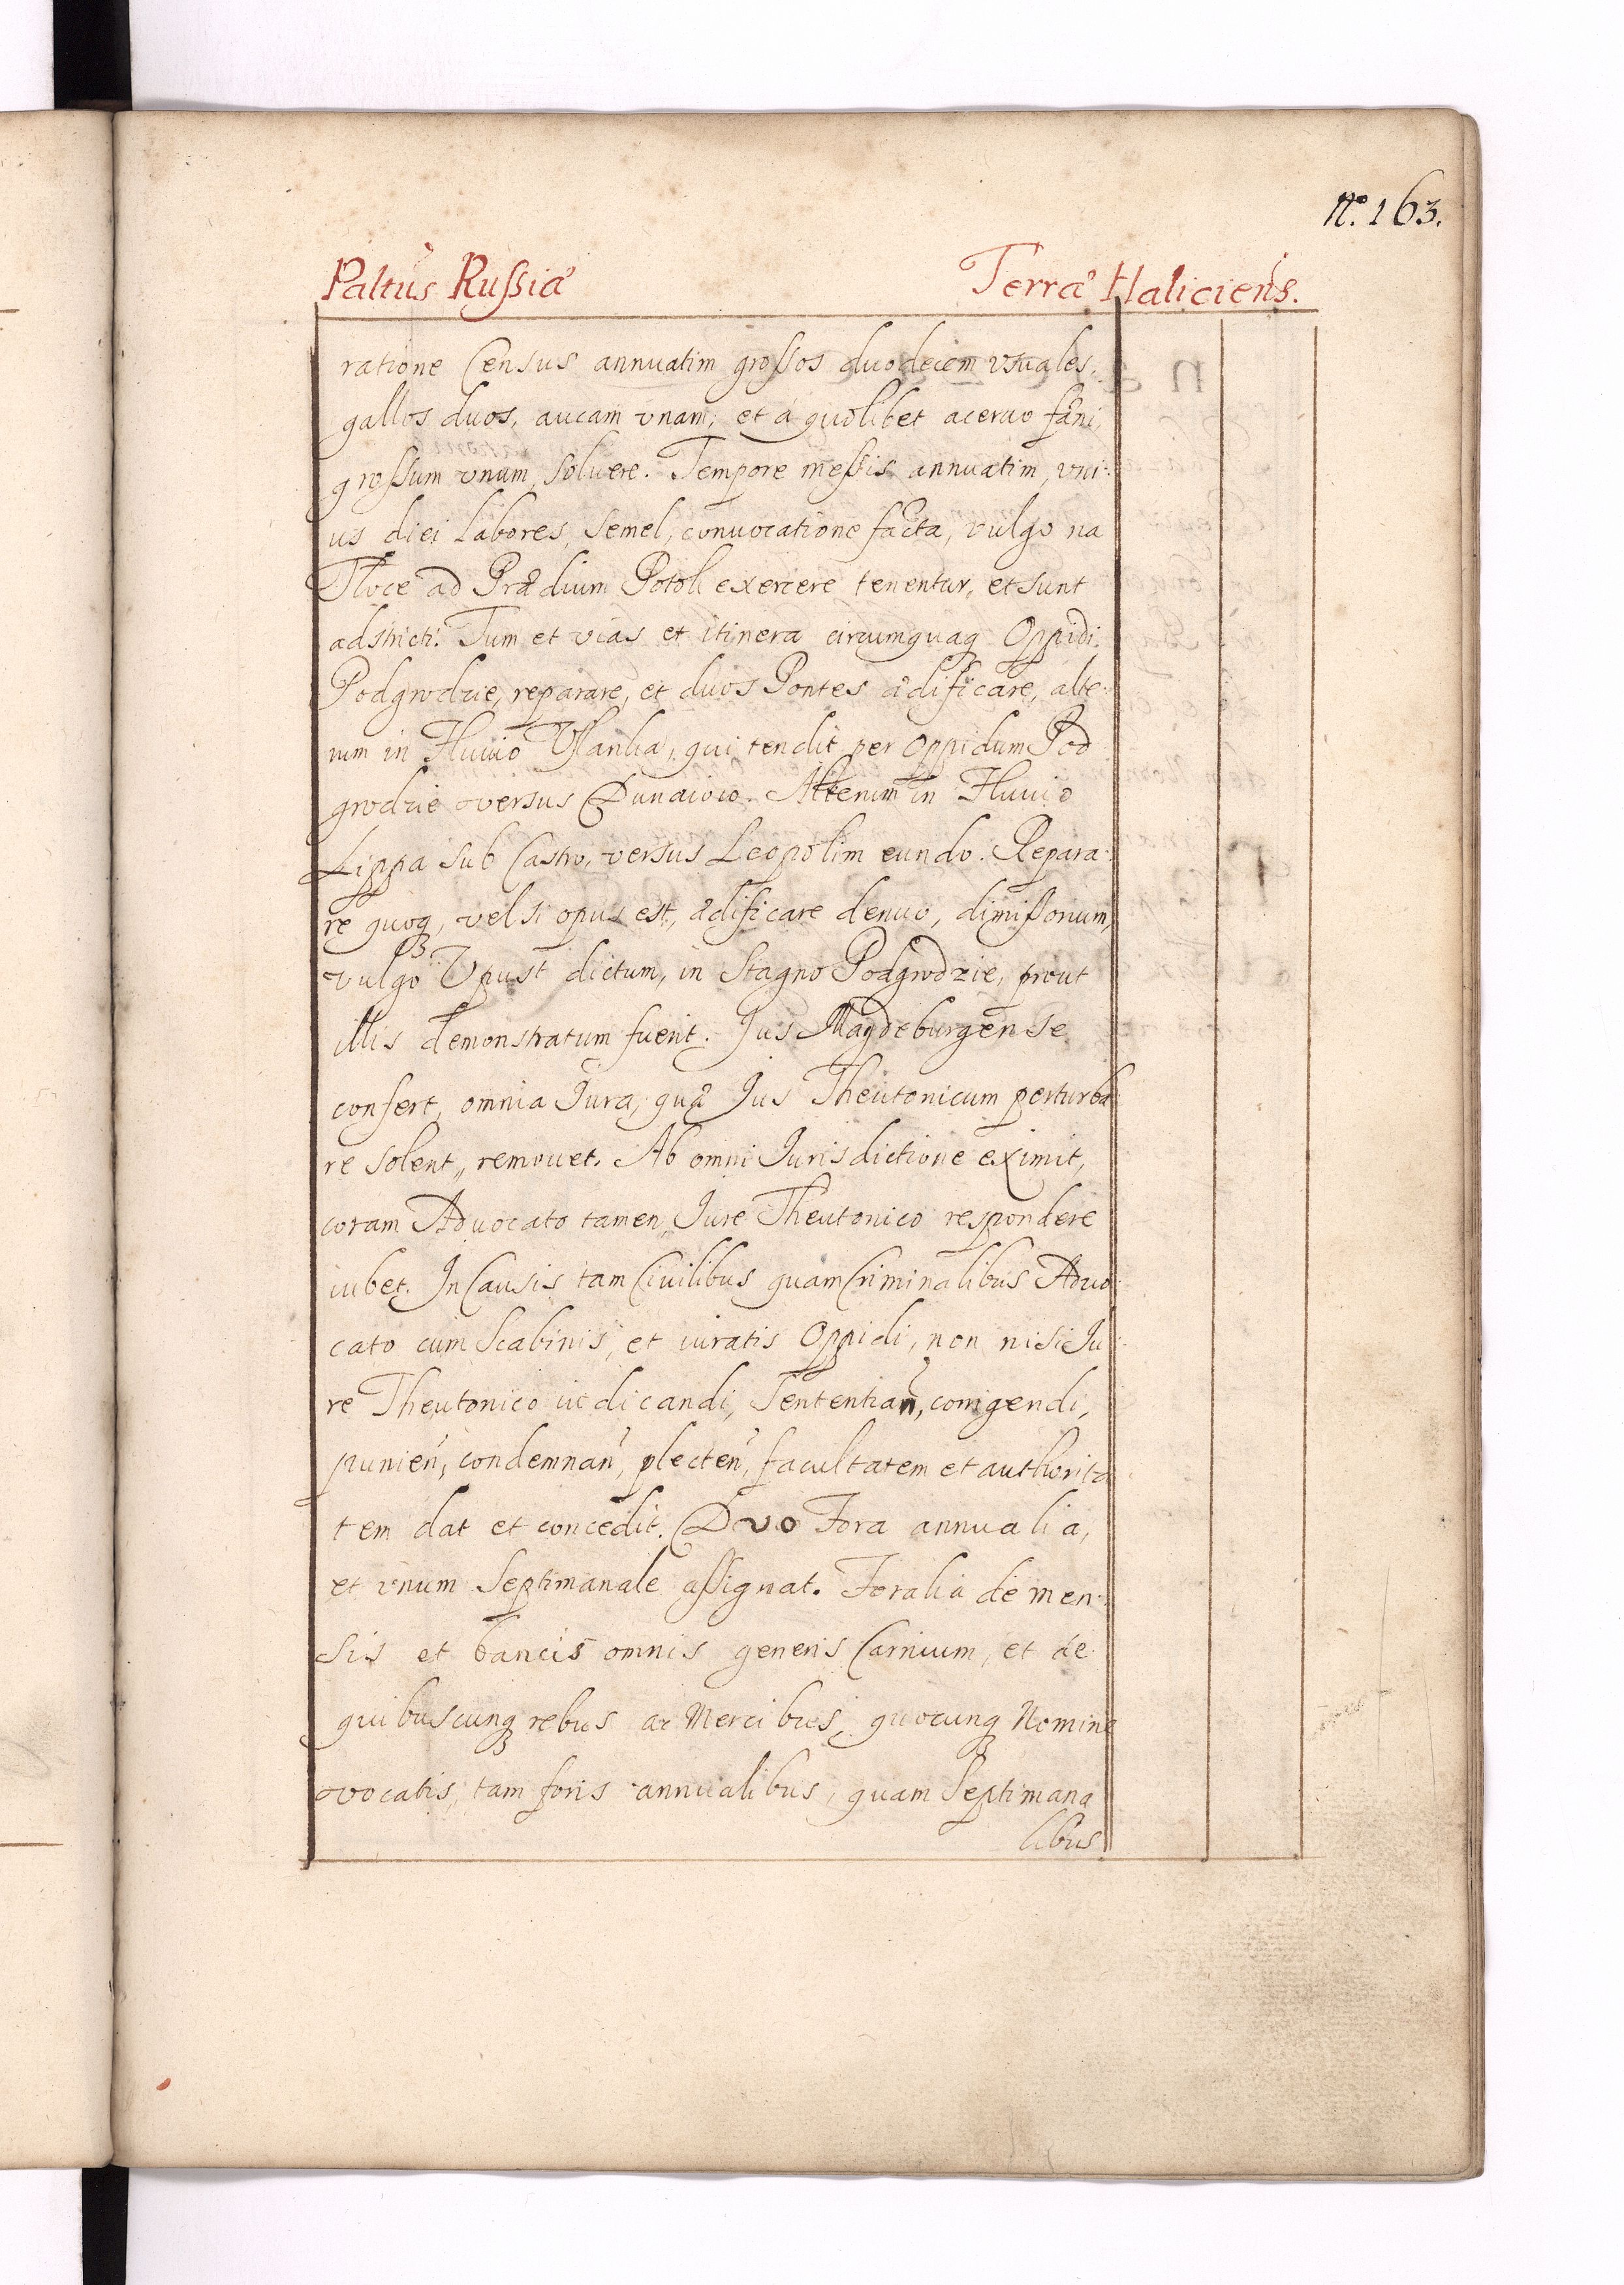 No. 163.
Paltus Russiæ Terræ Haliciens.
ratione Census annuatim grossos duodecem usuales,
gallos duos, aucam vnam, et à quolibet aceruo fæni,
grossum vnum, soluere. Tempore messis annuatim, vni:
us diei labores, semel, conuocatione facta, vulgo na
Tloce ad Prædium Potok exercere tenentur, et sunt
adstricti. Tum et vias et itinera circumquaq Oppidi
Podgrodzie, reparare, et duos Pontes ædificare, alte:
rum in Fluuio qui tendit per Oppidum Pod
grodzie versus Dunaiow. Alterum in Fluuio
Lippa sub Castro, versus Leopolim eundo. Repara:
re quoq, vel si opus est, ædificare denuo, dimissorium,
vulgo Vpust dictum, in Stagno Podgrodzie, prout
illis demonstratum fuerit. Jus Magdeburgense
confert, omnia Jura, quæ Jus Theutonicum perturba
re solent, remouet. Ab omni Jurisdictione eximit,
coram Aduocato tamen, Jure Theutonico respondere
iubet. In Causis tam Ciuilibus quam Criminalibus Aduo:
cato cum Scabinis, et iuratis Oppidi, non nisi Ju:
re Theutonico iudicandi, Sententian, corrigendi,
punien, condemnan, plecten, facultatem et authorita
tem dat et concedit. Duo Fora annualia,
et vnum Septimanale assignat. Foralia de men:
sis et bancis omnis generis Carnium, et de
quibuscunq rebus ac Mercibus, quocunq Nomine
vocatis, tam foris annualibus, quam Septimana
libus